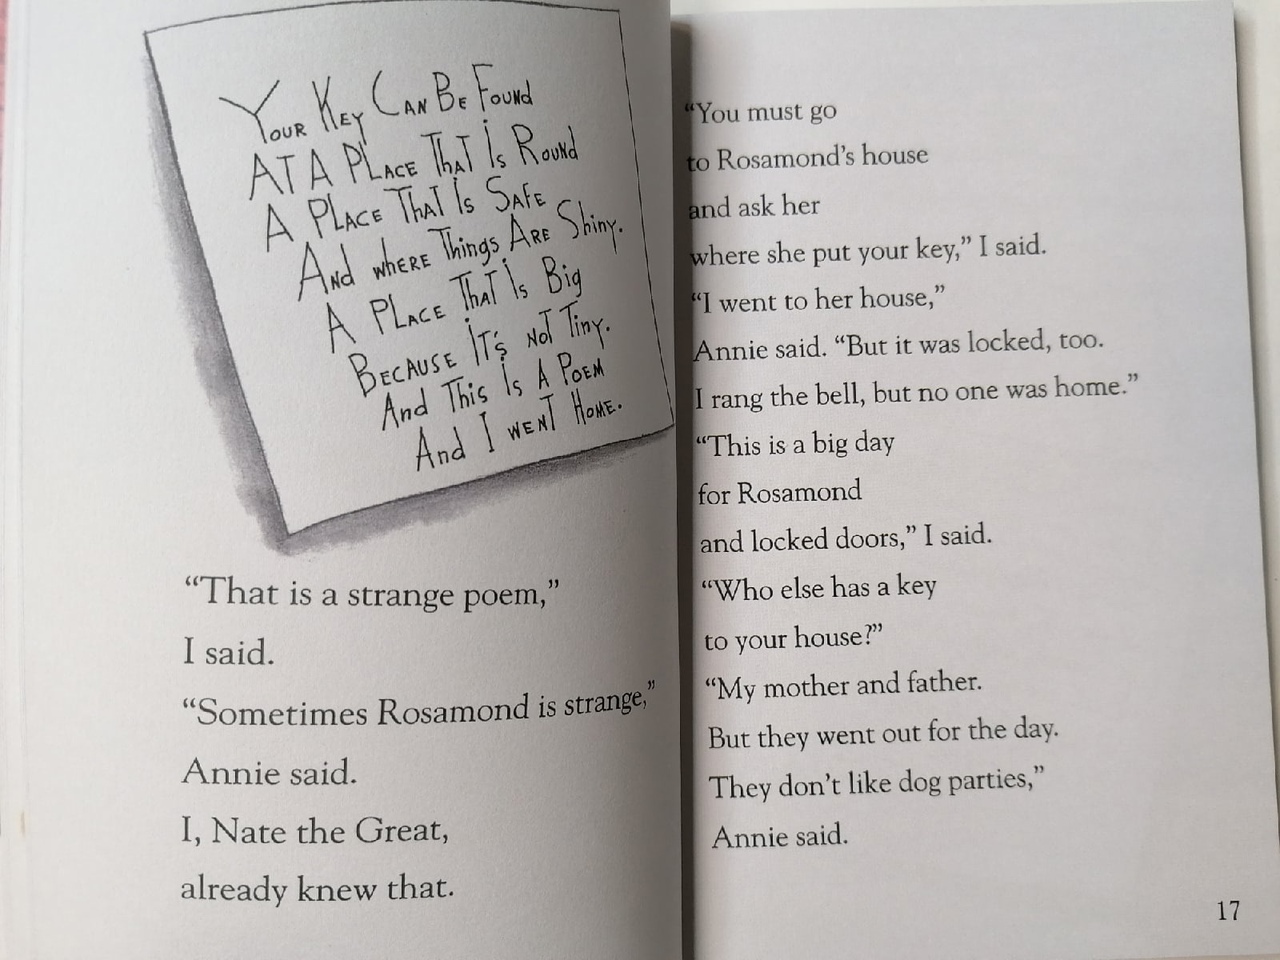 Your Key Can Be Found
At A Place That Is Round
A Place That Is Safe
And where Things Are Shiny.
A Place That Is Big
Because It's Not Tiny.
And This Is A Poem
And I went Home.
“That is a strange poem,”
I said.
“Sometimes Rosamond is strange,”
Annie said.
I, Nate the Great,
already knew that.
“You must go
to Rosamond’s house
and ask her
where she put your key,” I said.
“I went to her house,”
Annie said. “But it was locked, too.
I rang the bell, but no one was home.”
“This is a big day
for Rosamond
and locked doors,” I said.
“Who else has a key
to your house?”
“My mother and father.
But they went out for the day.
They don’t like dog parties,”
Annie said.
17